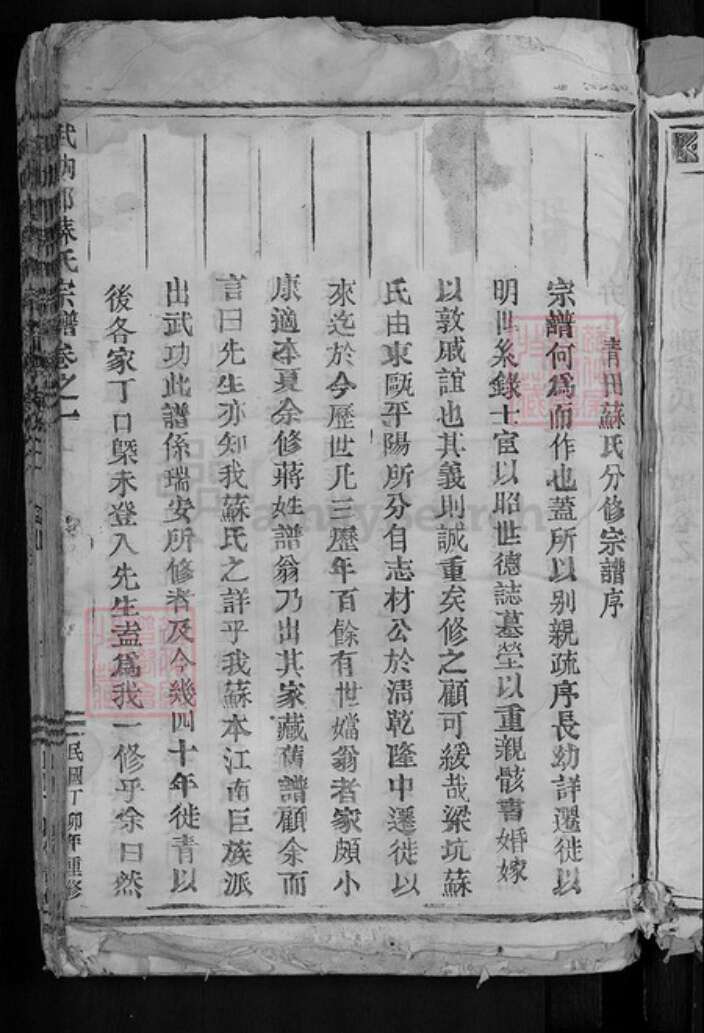 青田蘇氏分修宗譜序
宗譜何爲而作也蓋所以别親疏序長幼詳遷徙以
明世系錄士宦以昭世德誌墓塋以重親骸書婚嫁
以敦戚誼也其義則誠重矣修之顧可緩哉梁坑蘇
氏由東甌平陽所分自志材公於清乾隆中遷徙以
來迄於今歷世凡三歷年百餘有世嬀翁者家頗小
康適本夏余修蔣姓譜翁乃出其家藏舊譜顧余而
言曰先生亦知我蘇氏之詳乎我蘇本江南巨族派
出武功此譜係瑞安所修者及今幾四十年徙青以
後各家丁口槩未登入先生盍爲我一修乎余曰然
武功郡蘇氏宗譜卷之一
民國丁卯年重修